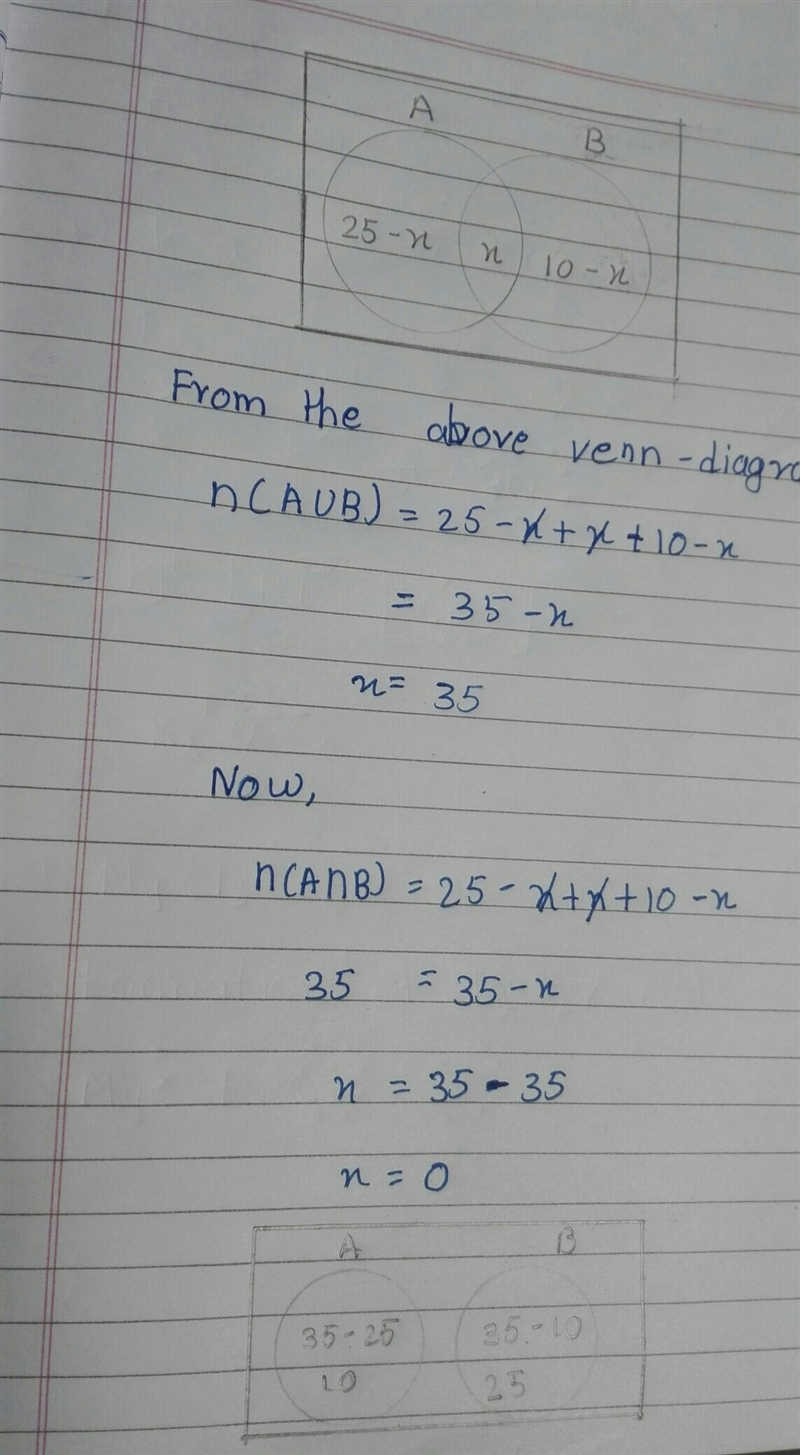 A
B
25-x x 10-x
From the above venn-diagra
n(A∪B) = 25-x+x+10-x
= 35-x
x= 35
Now,
n(A∩B) = 25-x+x+10-x
35 = 35-x
x = 35-35
x = 0
A B
35-25 35-10
10 25